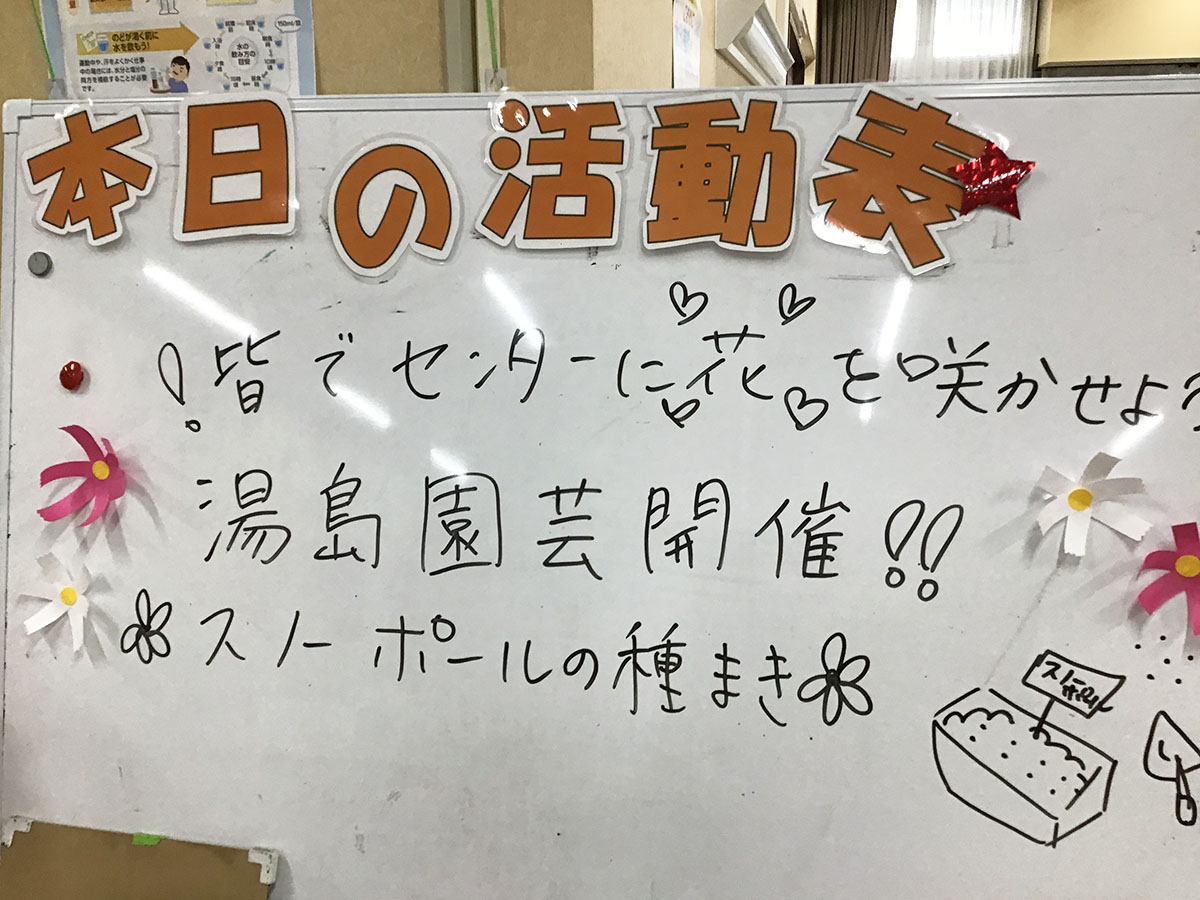 のどが渇く前に
水を飲もう!
運動中や、汗をよくかく仕事
中の場合には、水分と塩分の
両方を補給することが必要
です。
150ml/回
水の
飲み方の
目安
本日の活動表
!皆でセンターに花を咲かせよう
湯島園芸開催!!
スノーポールの種まき
スノーポール